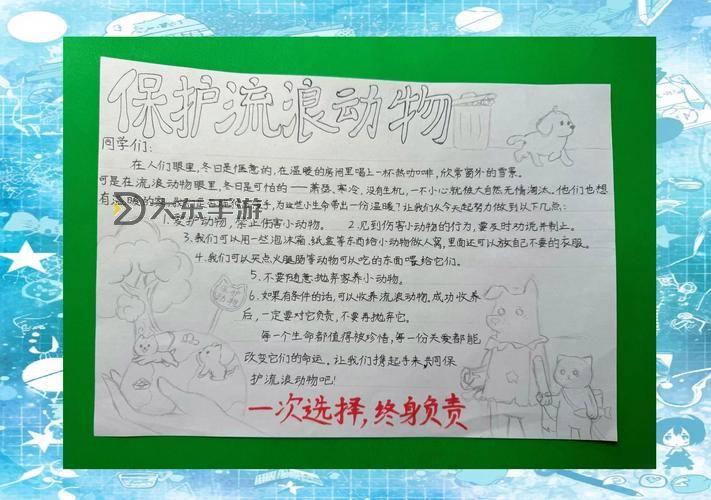 保护流浪动物
同学们:
在人们眼里,冬日是惬意的,在温暖的房间里喝上一杯热咖啡,欣赏窗外的雪景。
可是在流浪动物眼里,冬日是可怕的——萧瑟、寒冷,没有生机,一不小心就被大自然无情淘汰。他们也想
有温暖的家,手,为这些小生命带出一份温暖?让我们从今天起努力做到以下几点:
大东手游
1.爱护动物,禁止伤害小动物。 2.见到伤害小动物的行为,要及时劝说并制止。
3.我们可以用一些泡沫箱、纸盒等东西给小动物做人窝,里面还可以放自己不要的衣服。
4.我们可以买点火腿肠等动物可以吃的东西喂给它们。
5.不要随意抛弃家养小动物。
6.如果有条件的话,可以收养流浪动物。成功收养
后,一定要对它负责,不要再抛弃它。
每一个生命都值得被珍惜,每一份关爱都能
改变它们的命运。让我们携起手来,共同保
护流浪动物吧!
一次选择,终身负责